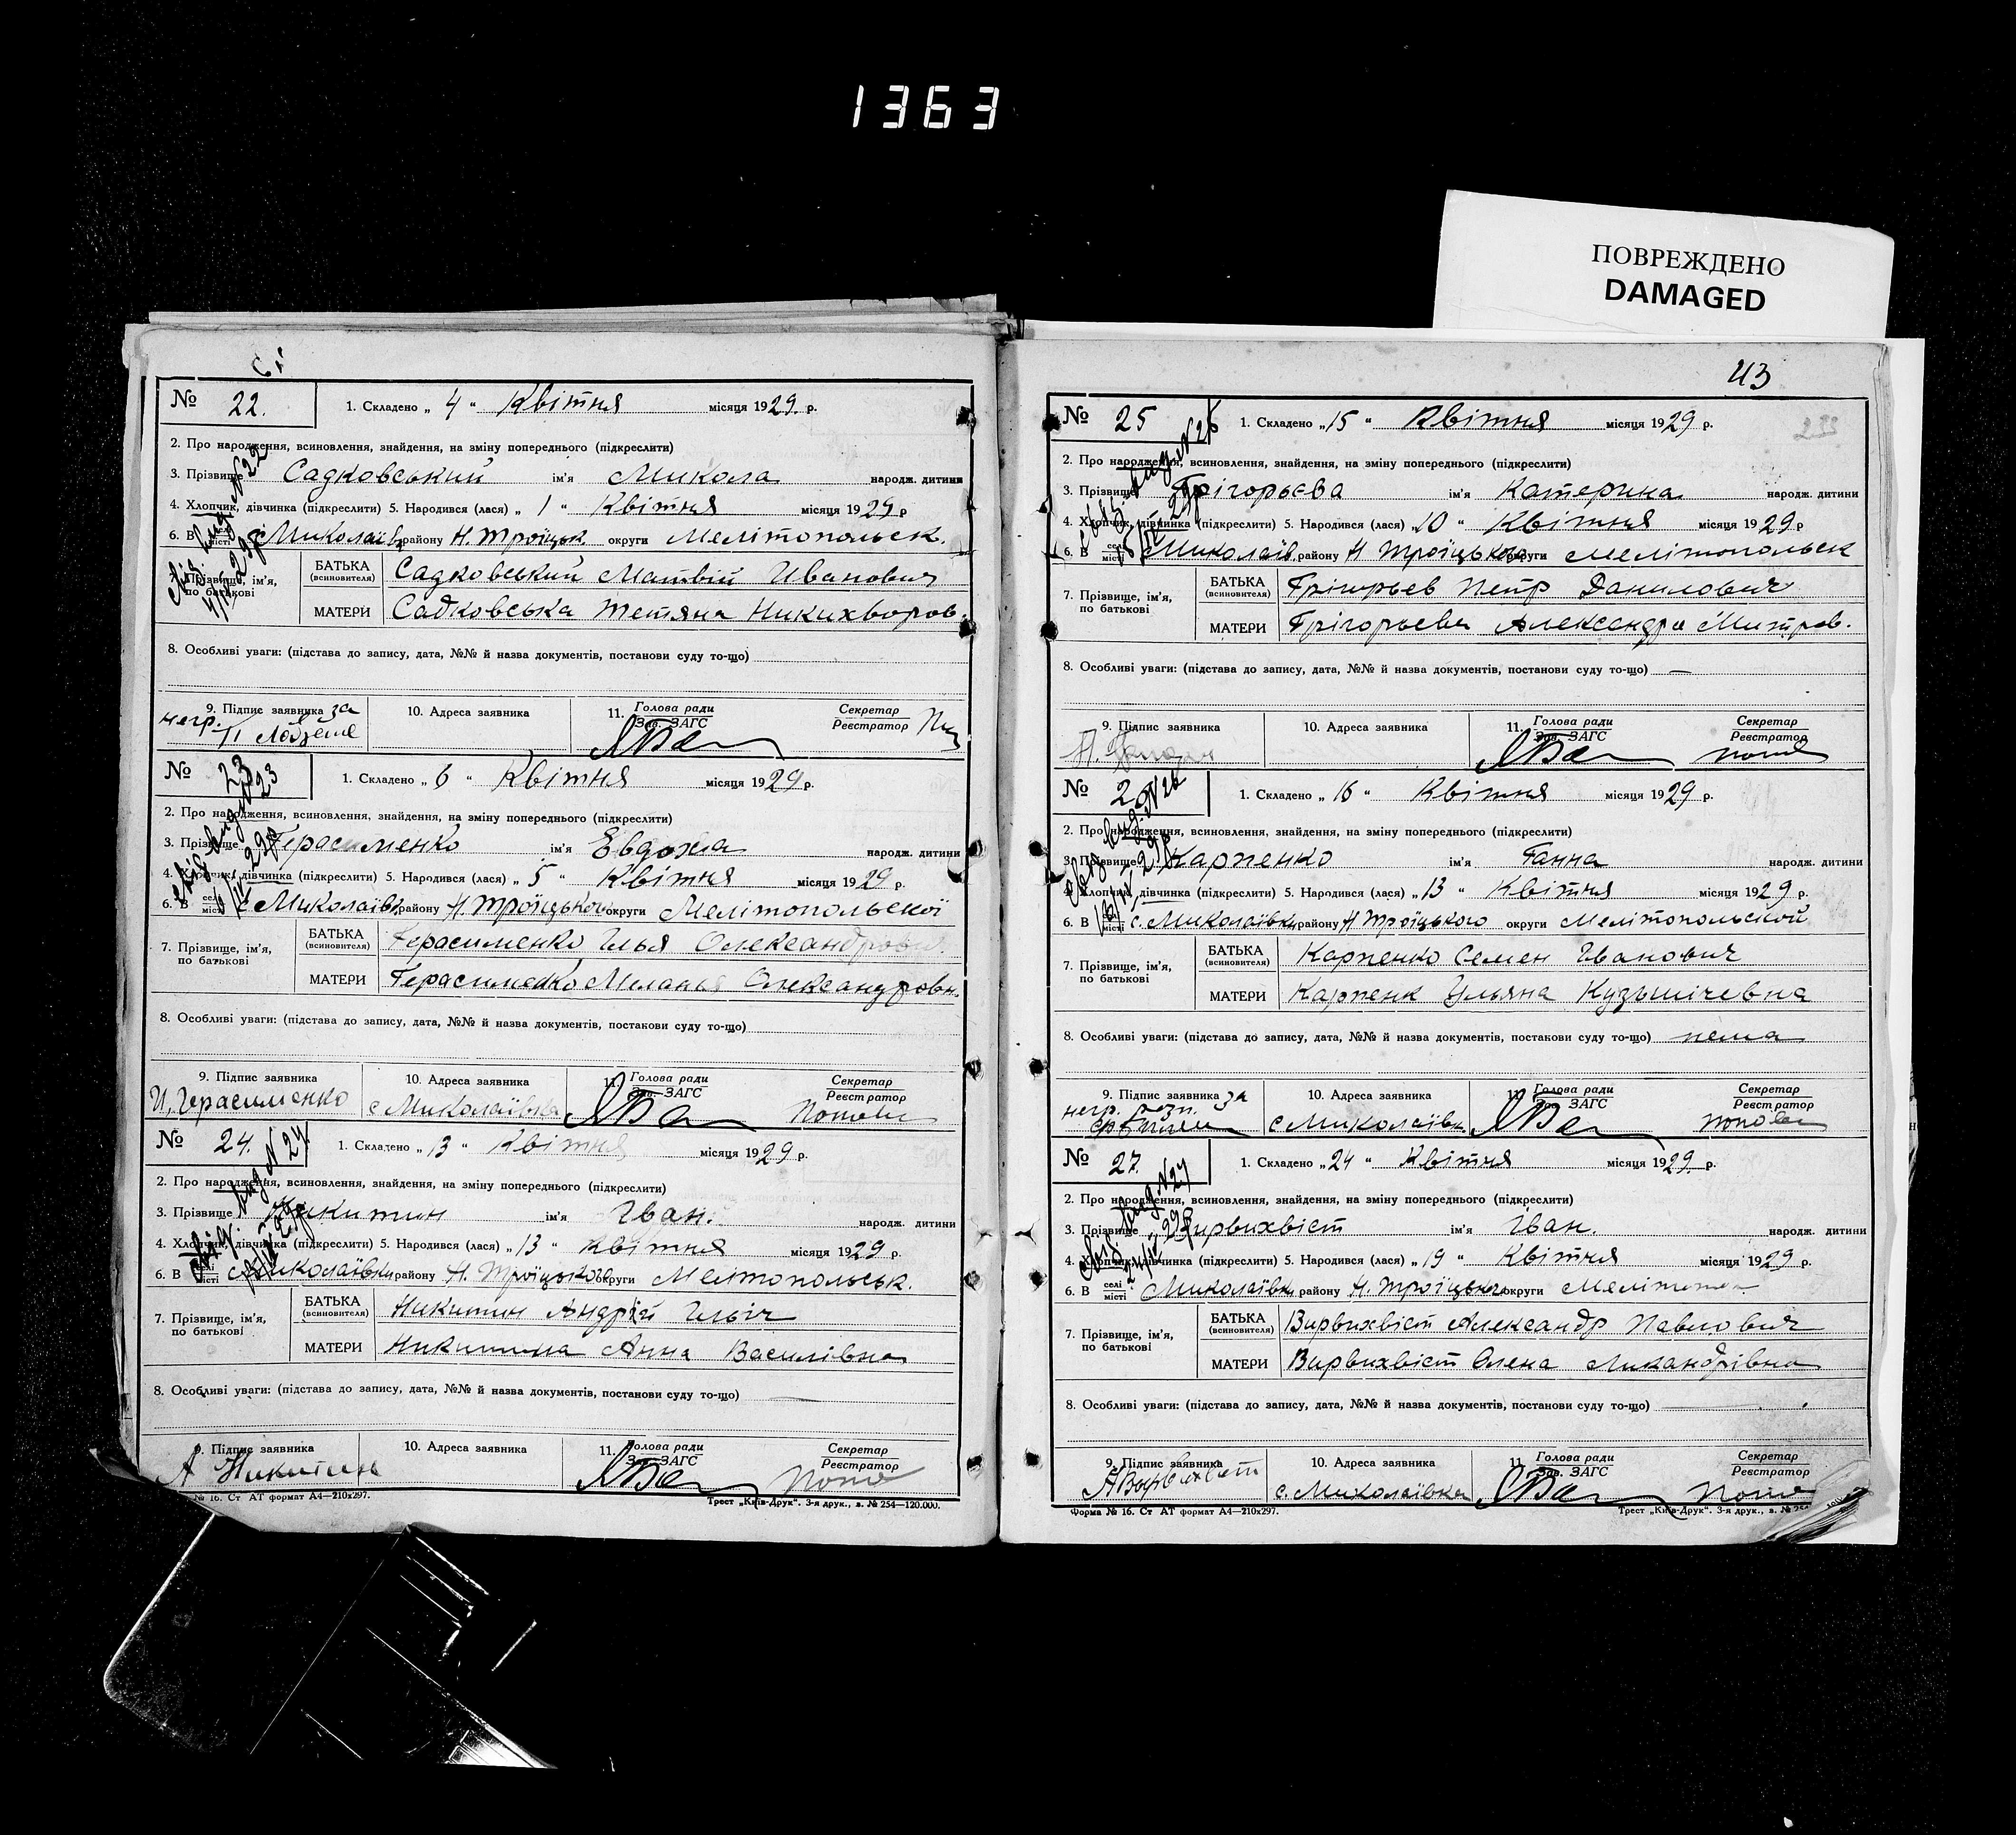 1363
ПОВРЕЖДЕНО
DAMAGED
№ 22. 1. Складено „ 4 “ Квітня місяця 1929. р.
2. Про народження, всиновлення, знайдення, на зміну попереднього (підкреслити)
3. Прізвище Садковський ім'я Микола народж. дитини
4. Хлопчик, дівчинка (підкреслити) 5. Народився (лася) „ 1 “ Квітня місяця 1929 р
6. В селі місті с Миколаївк району Н. Троїцьк округи Мелітопольськ.
7. Прізвище, ім'я, по батькові
БАТЬКА (всиновителя) Садковський Матвій Иванович
МАТЕРИ Садковська Тетяна Никихворов.
8. Особливі уваги: (підстава до запису, дата, №№ й назва документів, постанови суду то-що)
9. Підпис заявника за негр. 10. Адреса заявника 11. Голова ради Зав. ЗАГС Секретар Реєстратор
№ 23 1. Складено „ 6 “ Квітня місяця 1929 р.
2. Про народження, всиновлення, знайдення, на зміну попереднього (підкреслити)
3. Прізвище Герасименко ім'я Евдокия народж. дитини
4. Хлопчик, дівчинка (підкреслити) 5. Народився (лася) „ 5 “ Квітня місяця 1929 р.
6. В селі місті с Миколаївк району Н Троїцького округи Мелітопольскої
7. Прізвище, ім'я, по батькові
БАТЬКА (всиновителя) Герасименко Илья Олександрович
МАТЕРИ Герасименко Меланья Олександровн.
8. Особливі уваги: (підстава до запису, дата, №№ й назва документів, постанови суду то-що)
9. Підпис заявника И, Герасименко 10. Адреса заявника с Миколаївка 11. Голова ради Зав. ЗАГС Секретар Реєстратор
№ 24. 1. Складено „ 13 “ Квітня місяця 1929 р.
2. Про народження, всиновлення, знайдення, на зміну попереднього (підкреслити)
3. Прізвище Никитин ім'я Іван. народж. дитини
4. Хлопчик, дівчинка (підкреслити) 5. Народився (лася) „ 13 “ Квітня місяця 1929 р.
6. В селі місті с Миколаївки району Н. Троїцького округи Мелітопольськ.
7. Прізвище, ім'я, по батькові
БАТЬКА (всиновителя) Никитин Андрій Ильіч
МАТЕРИ Никитина Анна Василівна
8. Особливі уваги: (підстава до запису, дата, №№ й назва документів, постанови суду то-що)
9. Підпис заявника А Никитин 10. Адреса заявника 11. Голова ради Зав. ЗАГС Секретар Реєстратор
№ 16. Ст АТ формат А4—210х297. Трест „Київ-Друк“. 3-я друк., з. № 254—120.000.
43
№ 25 1. Складено „ 15 “ Квітня місяця 1929 р.
2. Про народження, всиновлення, знайдення, на зміну попереднього (підкреслити)
3. Прізвище Грігорьєва ім'я Катерина народж. дитини
4. Хлопчик, дівчинка (підкреслити) 5. Народився (лася) „ 10 “ Квітня місяця 1929 р
6. В селі місті с Миколаїв. району Н Троїцького округи Мелітопольськ
7. Прізвище, ім'я, по батькові
БАТЬКА (всиновителя) Грігорьев Петр Данилович
МАТЕРИ Грігорьева Александра Митров.
8. Особливі уваги: (підстава до запису, дата, №№ й назва документів, постанови суду то-що) —
9. Підпис заявника 10. Адреса заявника 11. Голова ради Зав. ЗАГС Секретар Реєстратор
№ 26 1. Складено „ 16 “ Квітня місяця 1929 р.
2. Про народження, всиновлення, знайдення, на зміну попереднього (підкреслити)
3. Прізвище Карпенко ім'я Ганна народж. дитини
4. Хлопчик, дівчинка (підкреслити) 5. Народився (лася) „ 13 “ Квітня місяця 1929 р.
6. В селі місті с. Миколаївки району Н Троїцького округи Мелітопольской
7. Прізвище, ім'я, по батькові
БАТЬКА (всиновителя) Карпенко Семен Иванович
МАТЕРИ Карпенк Ульяна Кузьмічевна
8. Особливі уваги: (підстава до запису, дата, №№ й назва документів, постанови суду то-що) нема
9. Підпис заявника за негр. розп. 10. Адреса заявника с Миколаївк. 11. Голова ради Зав. ЗАГС Секретар Реєстратор
№ 27. 1. Складено „ 24 “ Квітня місяця 1929. р.
2. Про народження, всиновлення, знайдення, на зміну попереднього (підкреслити)
3. Прізвище Вирвихвіст ім'я Іван. народж. дитини
4. Хлопчик, дівчинка (підкреслити) 5. Народився (лася) „ 19 “ Квітня місяця 1929 р.
6. В селі місті с. Миколаївки району Н. Троїцького округи
7. Прізвище, ім'я, по батькові
БАТЬКА (всиновителя) Вирвихвіст Александр Павлович
МАТЕРИ Вирвихвіст Олена Ликандрівна
8. Особливі уваги: (підстава до запису, дата, №№ й назва документів, постанови суду то-що)
9. Підпис заявника 10. Адреса заявника с. Миколаївка 11. Голова ради Зав. ЗАГС Секретар Реєстратор
Форма № 16. Ст АТ формат А4—210х297. Трест „Київ-Друк“. 3-я друк., з. №